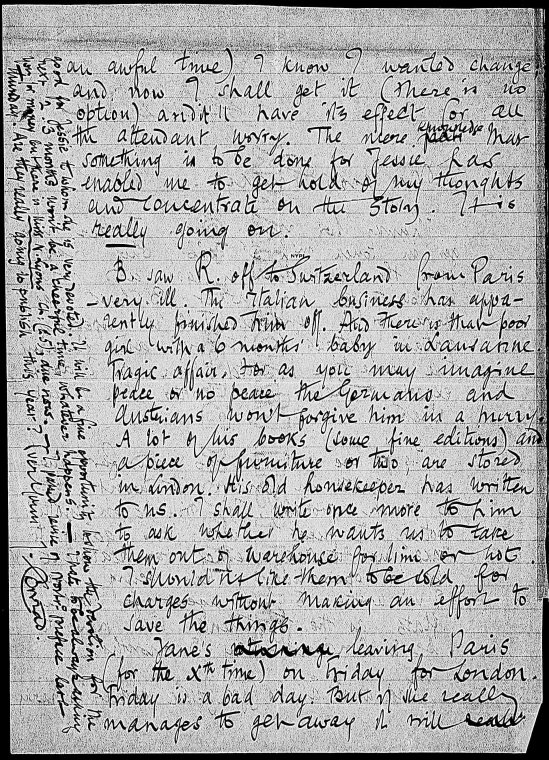 an awful time) I know I wanted change
and now I shall get it (there is no
option) and it'll have its effect for all
the attendant worry. The mere knowledge that
something is to be done for Jessie has
enabled me to get hold of my thoughts
and concentrate on the story. It is
really going on.
B. saw R. off to Switzerland from Paris
– very ill. The Italian business has appa-
rently finished him off. And there is that poor
girl with a 6 months' baby in Lausanne
tragic affair. For as you may imagine
peace or no peace the Germans and
Austrians won't forgive him in a hurry.
A lot of his books (some fine editions) and
a piece of furniture or two, are stored
in London. His old housekeeper has written
to us. I shall write once more to him
to ask whether he wants us to take
them out of warehouse for him or not.
I should not like them to be sold for
charges without making an effort to
save the things.
Jane's leaving Paris
(for the Xth time) on Friday for London.
Friday is a bad day. But if she really
manages to get away it will
good for Jessie to whom she is very devoted. It will be a fine opportunity to show the devotion for the
next 2 or 3 months won't be a cheerful time, whatever happens. – I hate to be always asking
for money but there is this (£5) due now. – I joined preface last
Thursday. Are they really going to publish this year?
Conrad.